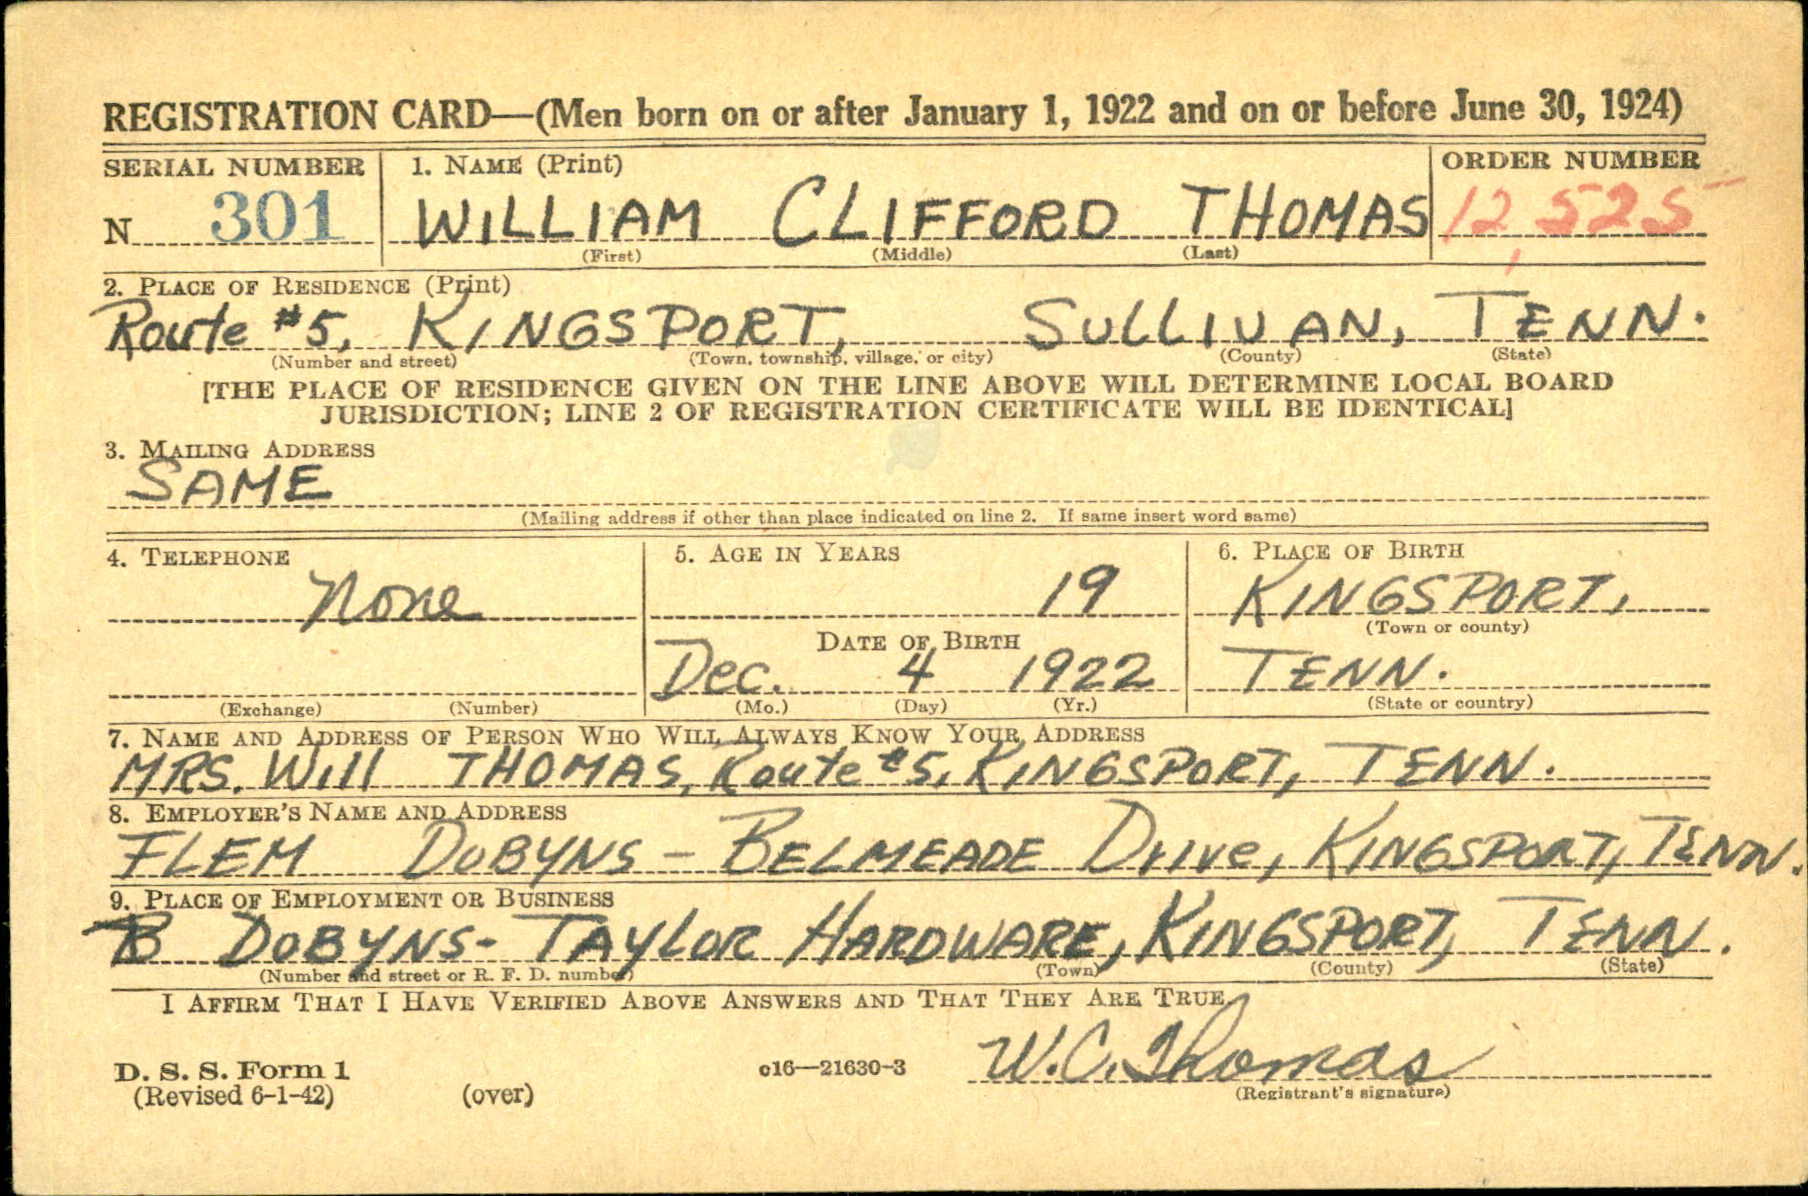 REGISTRATION CARD—(Men born on or after January 1, 1922 and on or before June 30, 1924)
SERIAL NUMBER 1. NAME (Print) ORDER NUMBER
N 301 WILLIAM CLIFFORD THOMAS 12,525
(First) (Middle) (Last)
2. PLACE OF RESIDENCE (Print)
Route #5, KINGSPORT, SULLIVAN, TENN.
(Number and street) (Town, township, village, or city) (County) (State)
[THE PLACE OF RESIDENCE GIVEN ON THE LINE ABOVE WILL DETERMINE LOCAL BOARD
JURISDICTION; LINE 2 OF REGISTRATION CERTIFICATE WILL BE IDENTICAL]
3. MAILING ADDRESS
SAME
(Mailing address if other than place indicated on line 2. If same insert word same)
4. TELEPHONE 5. AGE IN YEARS 6. PLACE OF BIRTH
None 19 KINGSPORT,
(Town or county)
DATE OF BIRTH
Dec. 4 1922 TENN.
(Exchange) (Number) (Mo.) (Day) (Yr.) (State or country)
7. NAME AND ADDRESS OF PERSON WHO WILL ALWAYS KNOW YOUR ADDRESS
MRS. Will THOMAS, Route #5, KINGSPORT, TENN.
8. EMPLOYER'S NAME AND ADDRESS
FLEM DOBYNS - BELMEADE Drive, KINGSPORT, TENN.
9. PLACE OF EMPLOYMENT OR BUSINESS
B DOBYNS- TAYLOR HARDWARE, KINGSPORT, TENN.
(Number and street or R. F. D. number) (Town) (County) (State)
I AFFIRM THAT I HAVE VERIFIED ABOVE ANSWERS AND THAT THEY ARE TRUE.
W.C. Thomas
D. S. S. Form 1 c16—21630-3
(Revised 6-1-42) (over) (Registrant's signature)